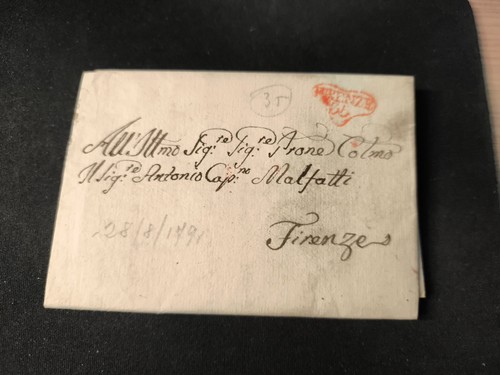 35
FIRENZE
All' Ittmo Sigre Sigre Prone Colmo
Il Sigre Antonio Capno Malfatti
28/8/1791
Firenze